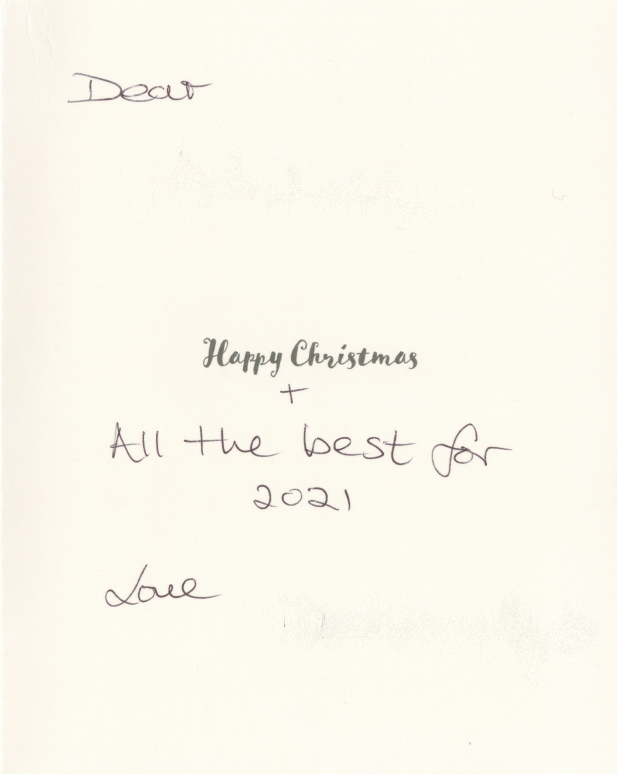 Dear
Happy Christmas
+
All the best for
2021
Love